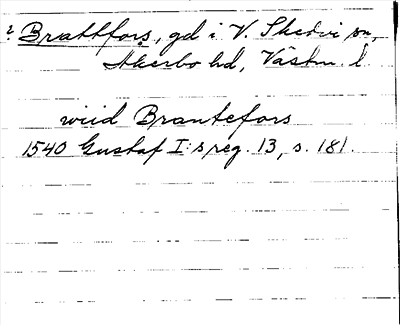 2 Brattfors, gd i V. Skedvi sn,
Åkerbo hd, Västm. l.
wiid Brantefors
1540 Gustaf I:s reg. 13, s. 181.